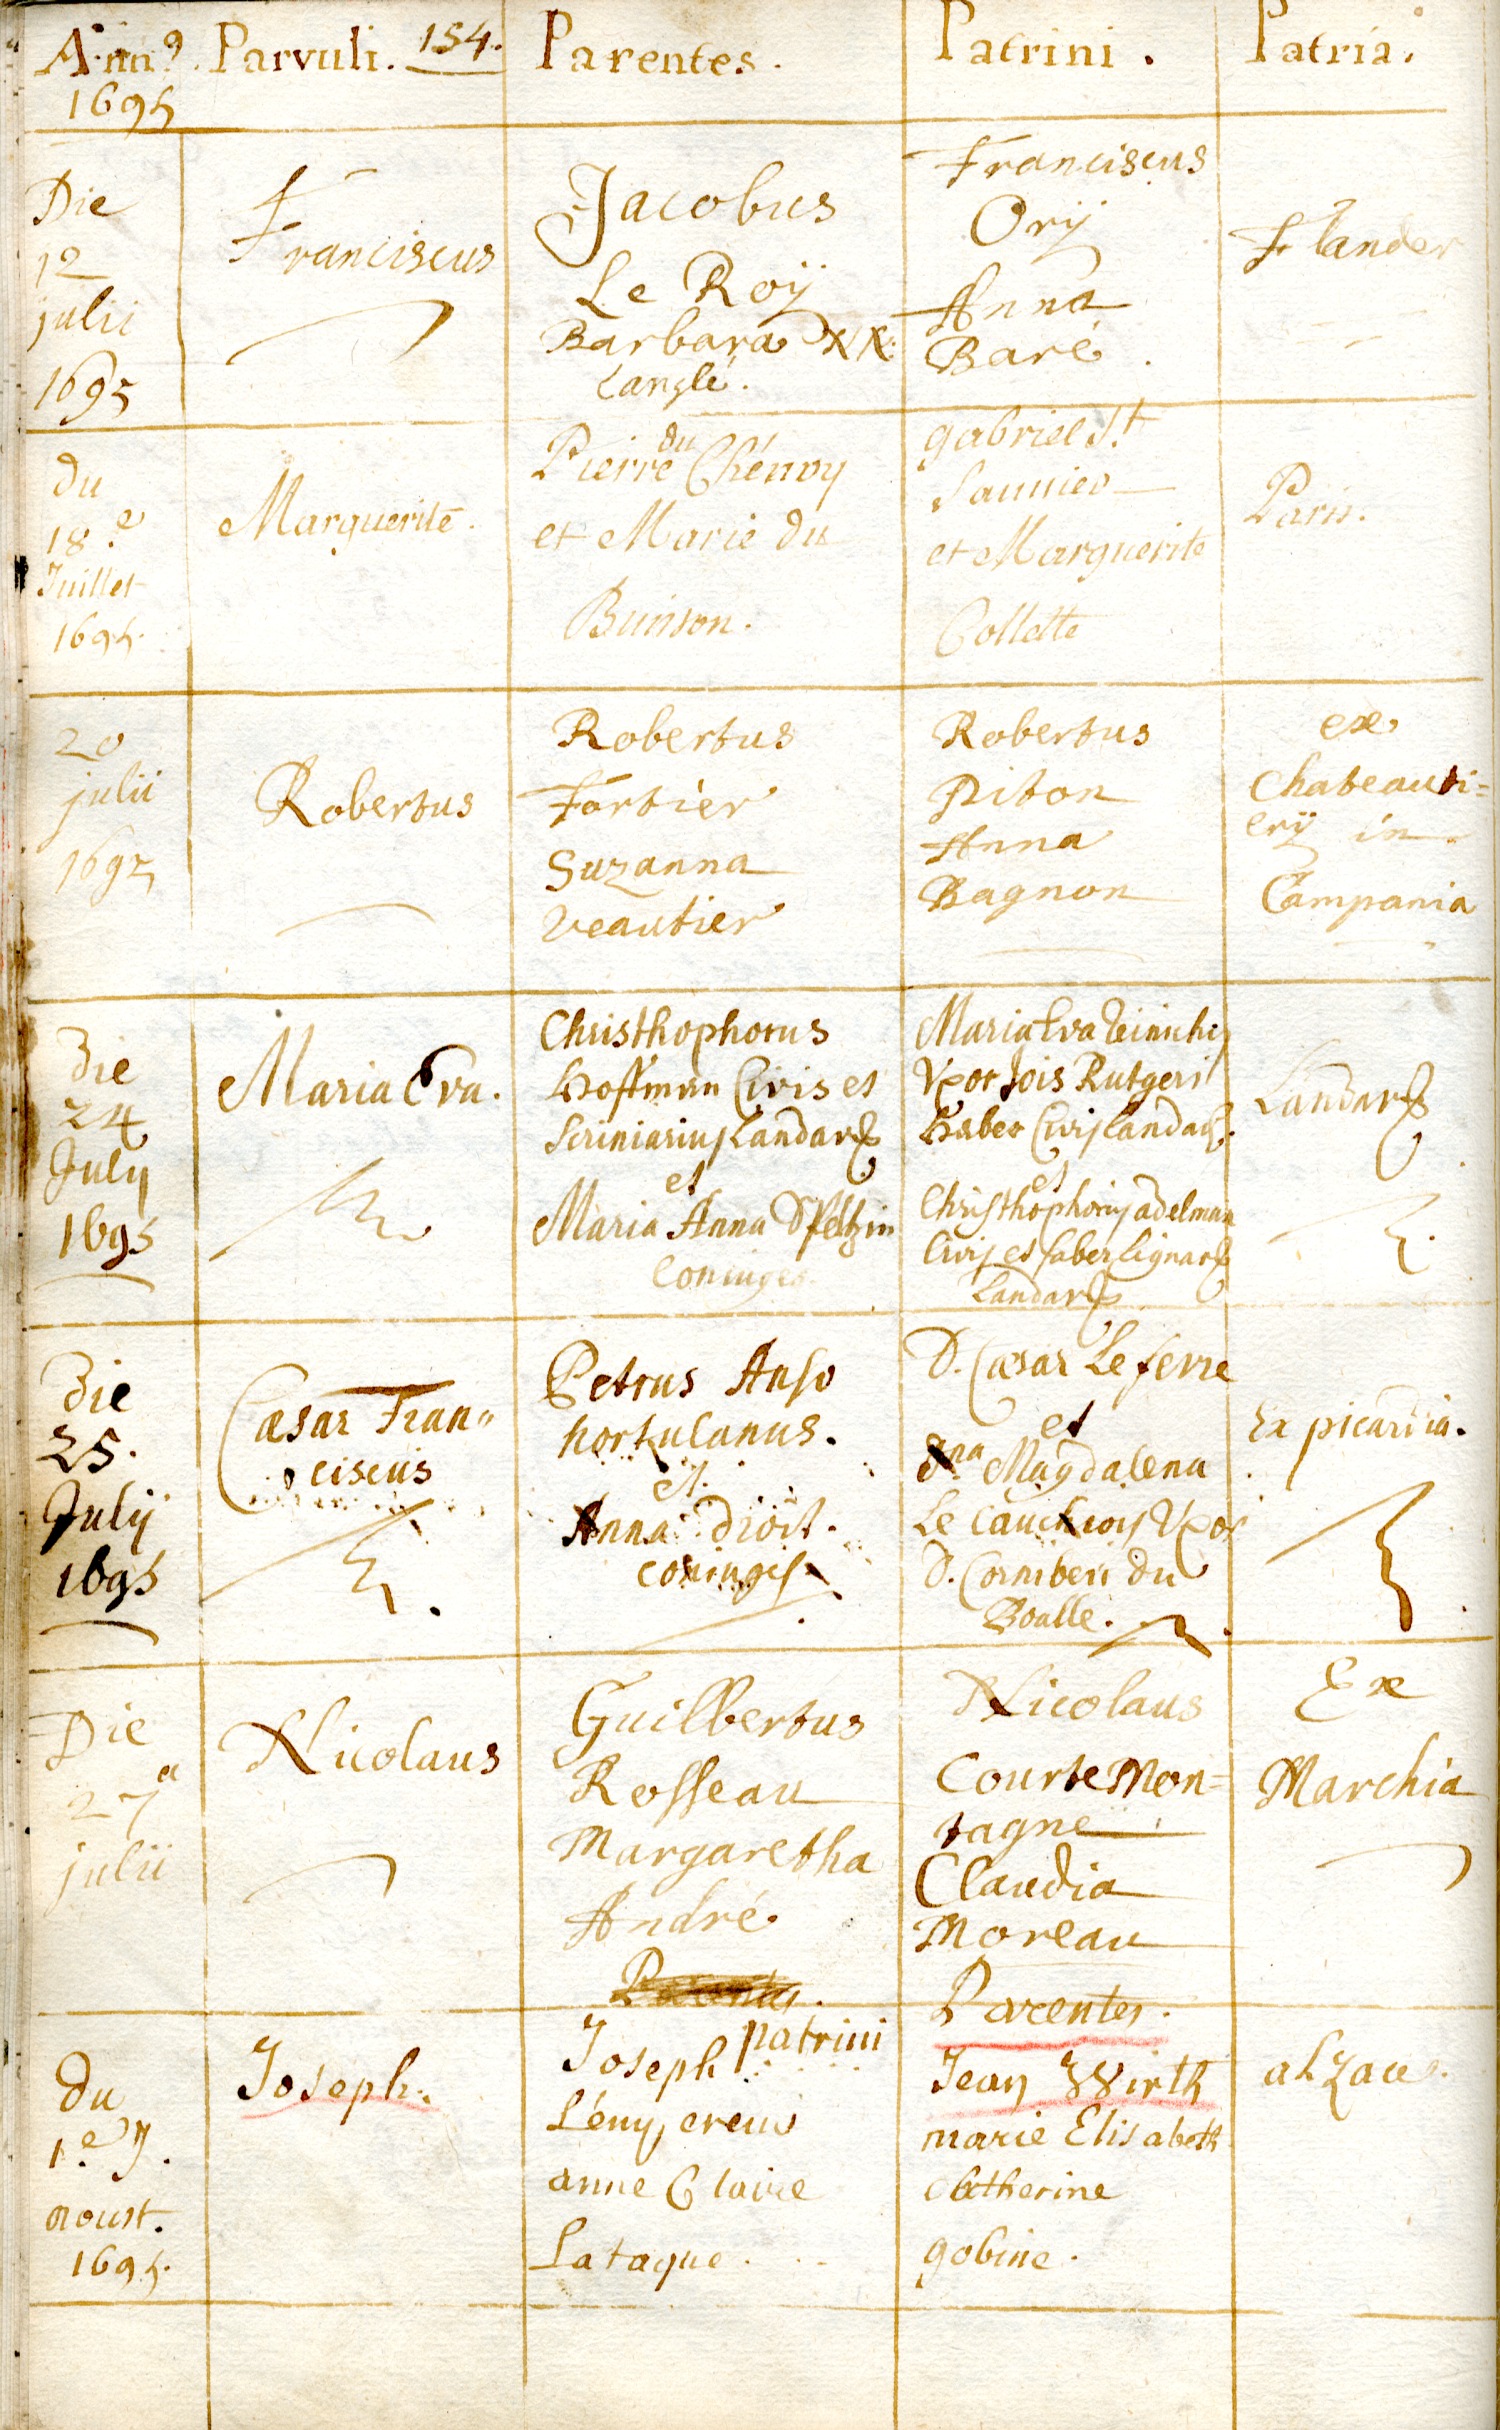 Ann⁹ Parvuli. 154. Parentes. Patrini. Patria.
1695
Die
12
julii
1695
Franciscus
Jacobus
Le Roÿ
Barbara XX.
Langlé.
Franciscus
Orÿ
Anna
Baré.
Flander
du
18.e
Juillet
1695.
Marguerite.
Pierre du Chénoy
et Marie du
Buisson.
gabriel St
Saunier
et Marguerite
Collette
Paris.
20
julii
1695
Robertus
Robertus
Fortier
Suzanna
Veautier
Robertus
Piton
Anna
Bagnon
ex
Chateauti=
erÿ in
Campania
Die
24
July
1695
Maria Eva.
Christhophorus
Hoffman Civis et
Scriniarius Landav
et
Maria Anna Speltzin
Coniuges.
Maria Eva
Uxor Jois Rutgeri
Haber Civis Landav.
et
Christhophorus adelman
Civis et faber lignar
Landav
Landav
Die
25.
Julij
1695
Cæsar Fran"
ciscus
Petrus Anso
hortulanus.
et.
Anna droit.
coniuges
D. Cæsar Le ferre
et
Dna Magdalena
Le Uxor
D. Corniberi du
Boalle.
Ex picardia.
Die
27a
julii
Nicolaus
Guilbertus
Rosseau
Margaretha
André.
Nicolaus
Courtemon=
tagne
Claudia
Moreau
Ex
Marchia
du
1.e J.
aoust.
1695.
Joseph.
patrini
Joseph
Lény,
anne Claire
Lataque.
Parentes.
Jean Wirth
marie Elisabeth
Catherine
gobine.
alzace.